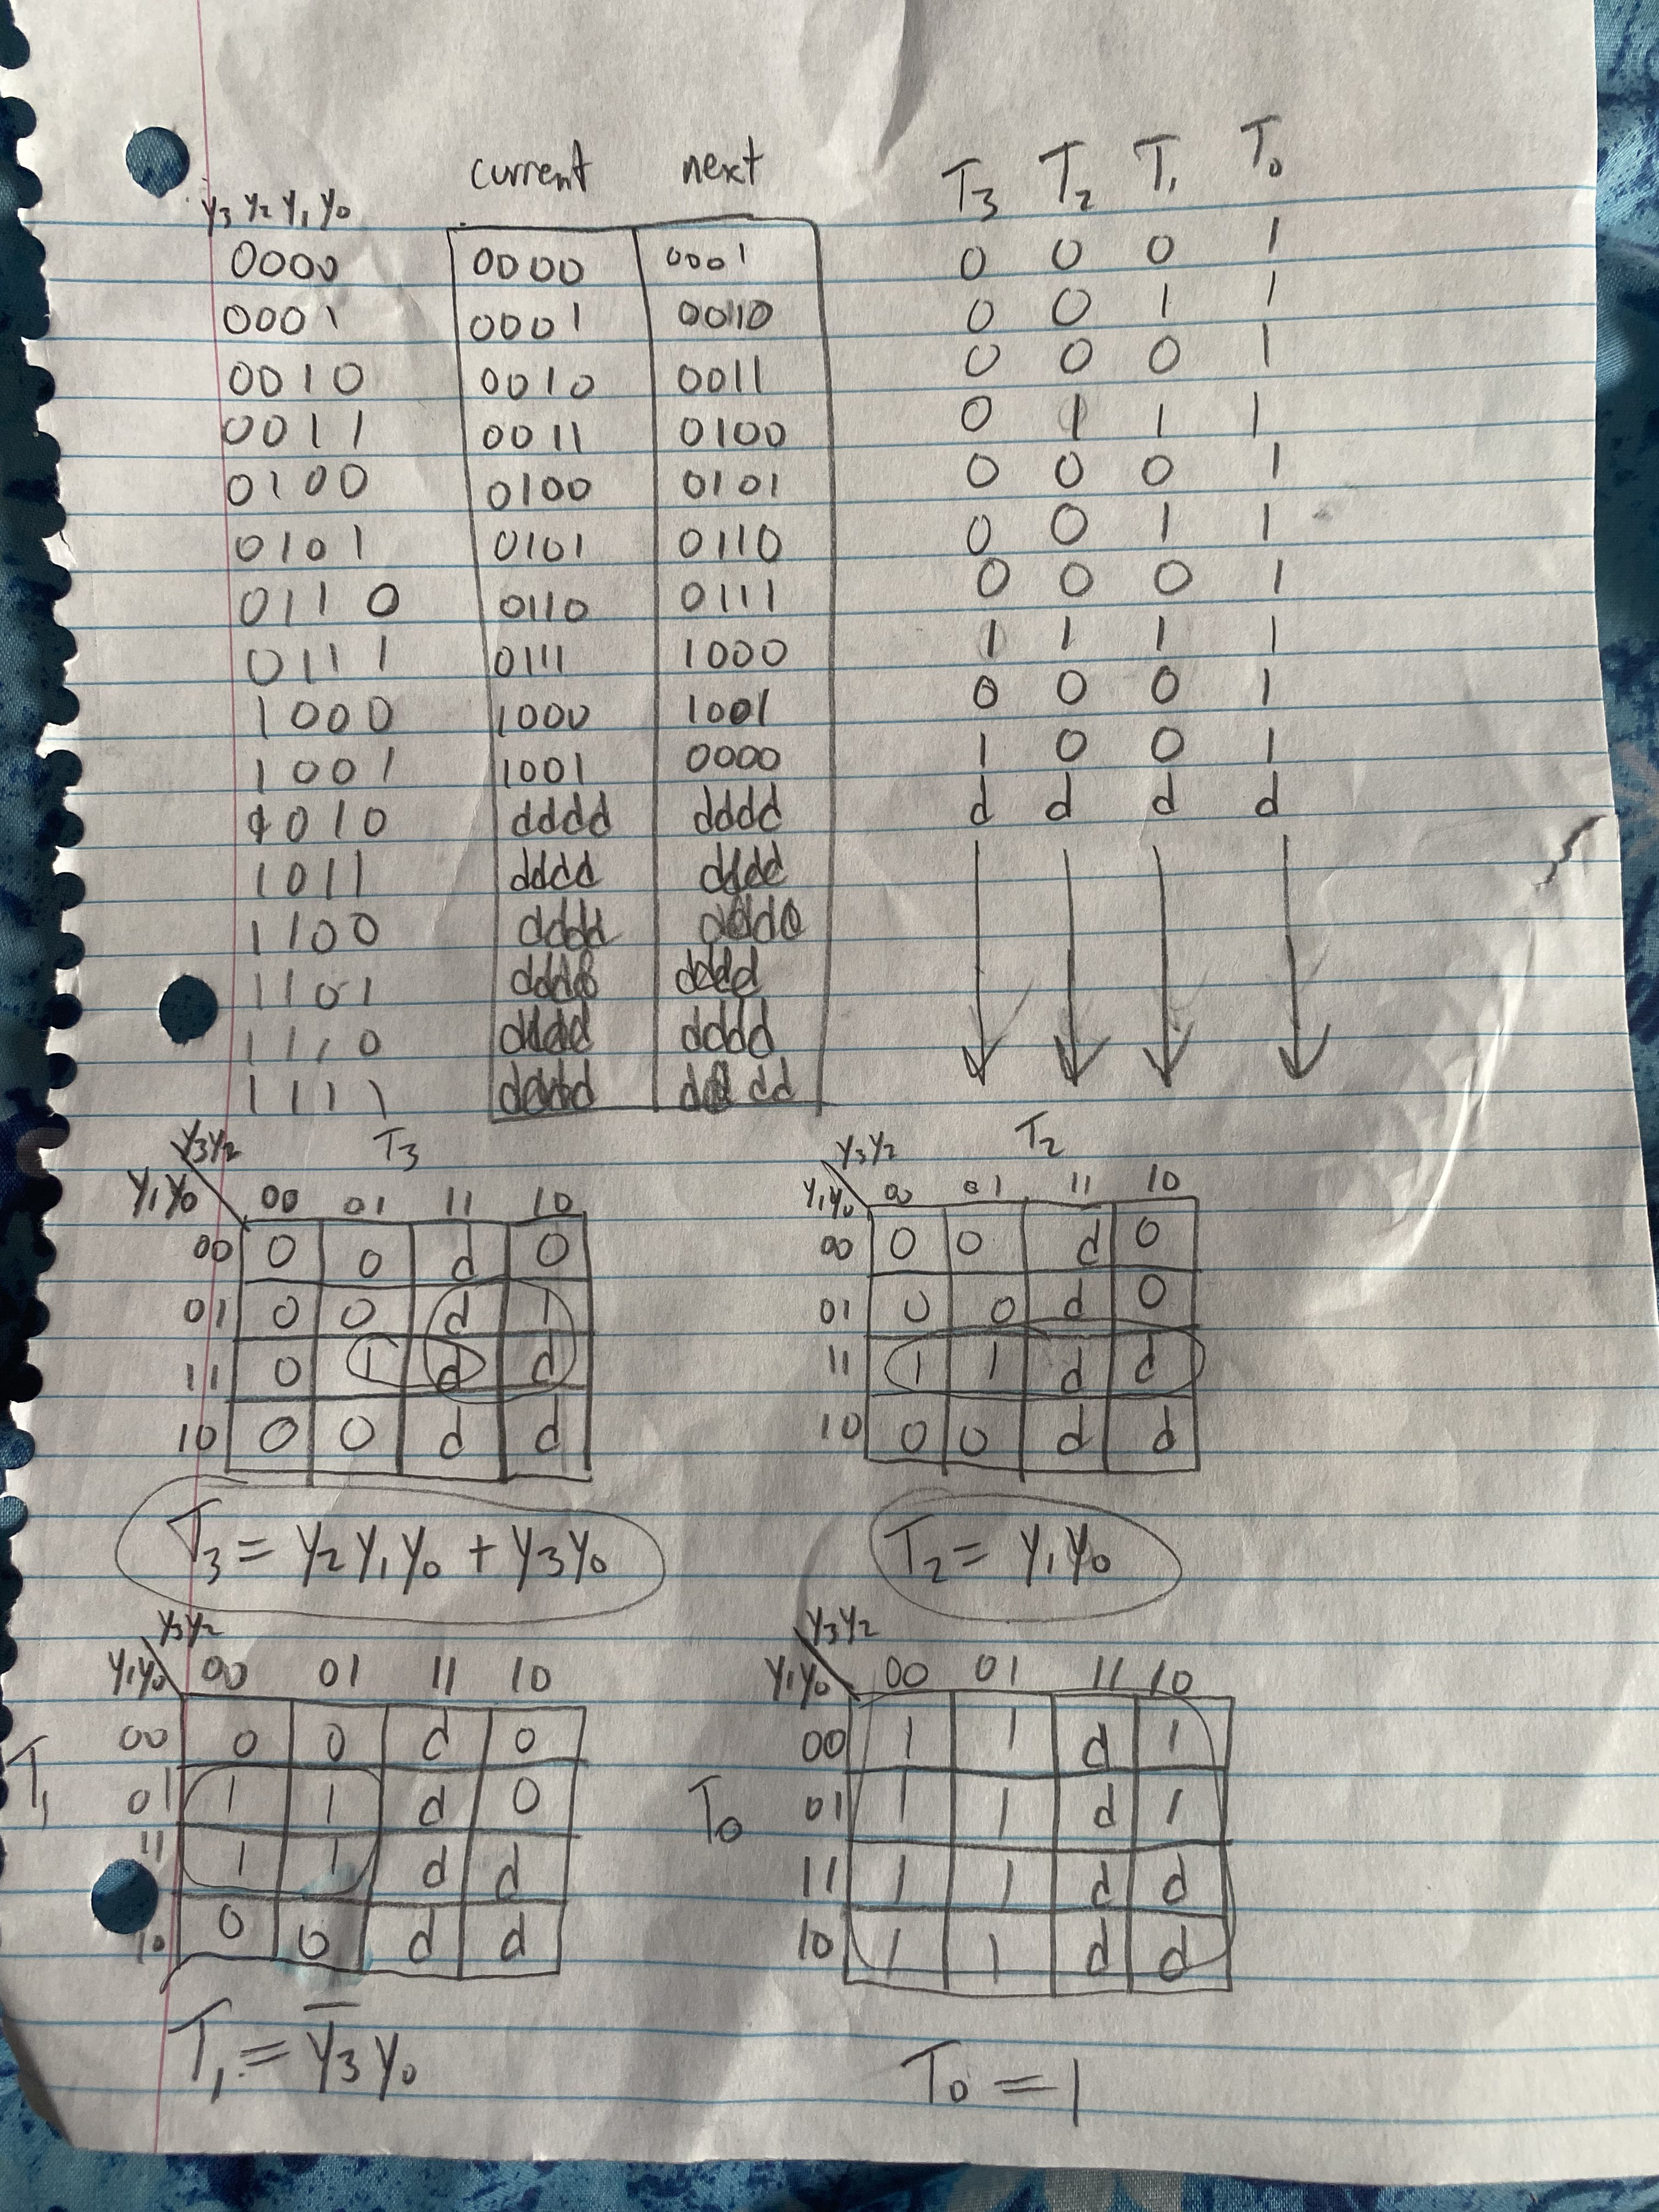 current next T₃ T₂ T₁ T₀
y₃ y₂ y₁ y₀
0000 0000 0001 0 0 0 1
0001 0001 0010 0 0 1 1
0010 0010 0011 0 0 0 1
0011 0011 0100 0 1 1 1
0100 0100 0101 0 0 0 1
0101 0101 0110 0 0 1 1
0110 0110 0111 0 0 0 1
0111 0111 1000 1 1 1 1
1000 1000 1001 0 0 0 1
1001 1001 0000 1 0 0 1
1010 dddd dddd d d d d
1011 dddd dddd
1100 dddd dddd
1101 dddd dddd
1110 dddd dddd
1111 dddd dddd
T₃
y₃y₂
y₁y₀ 00 01 11 10
00 0 0 d 0
01 0 0 d 1
11 0 1 d d
10 0 0 d d
T₃ = y₂y₁y₀ + y₃y₀
T₂
y₃y₂
y₁y₀ 00 01 11 10
00 0 0 d 0
01 0 0 d 0
11 1 1 d d
10 0 0 d d
T₂ = y₁y₀
y₃y₂
y₁y₀ 00 01 11 10
00 0 0 d 0
T₁ 01 1 1 d 0
11 1 1 d d
10 0 0 d d
T₁ = y̅₃y₀
y₃y₂
y₁y₀ 00 01 11 10
00 1 1 d 1
T₀ 01 1 1 d 1
11 1 1 d d
10 1 1 d d
T₀ = 1